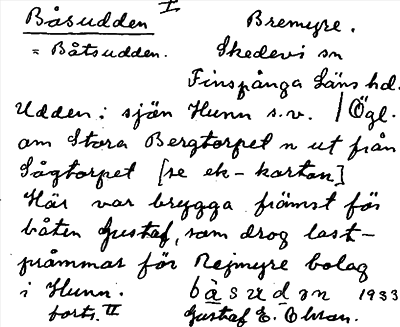 Båsudden I Bremyre.
= Båtsudden. Skedevi sn
Finspånga Läns hd.
Udden i sjön Hunn s.v. | Ögl.
om Stora Bergtorpet n ut från
Sågtorpet [se ek-kartan]
Här var brygga främst för
båten Gustaf, som drog last-
pråmmar för Rejmyre bolag
i Hunn. båsudən 1933
forts. II Gustaf E. Olsson.